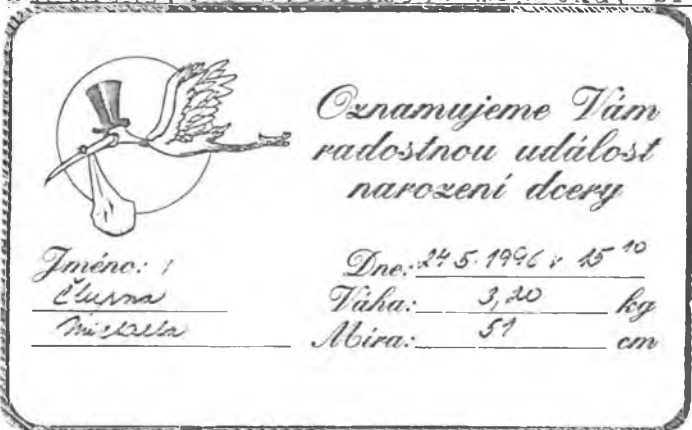 Oznamujeme Vám
radostnou událost
narození dcery
Jméno:
Michaela
Dne: 24.5.1996 v 15 10
Váha: 3,20 kg
Míra: 51 cm